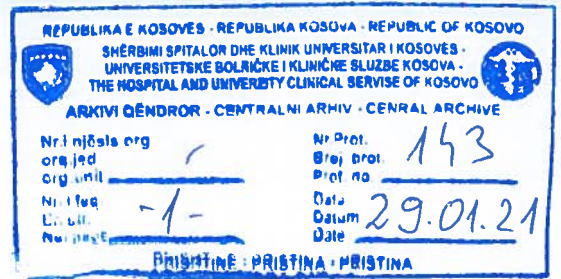 REPUBLIKA E KOSOVËS - REPUBLIKA KOSOVA - REPUBLIC OF KOSOVO
SHËRBIMI SPITALOR DHE KLINIK UNIVERSITAR I KOSOVËS -
UNIVERSITETSKE BOLNIČKE I KLINIČKE SLUZBE KOSOVA -
THE HOSPITAL AND UNIVERZITY CLINICAL SERVISE OF KOSOVO
ARKIVI QËNDROR - CENTRALNI ARHIV - CENRAL ARCHIVE
Nr. i njësis org
org. jed
org. unit
Nr. Prot.
Broj prot.
Prot. no.
143
Nr. i faq
-1-
Data
Datum
Date
29.01.21
PRISHTINË - PRISTINA - PRISTINA